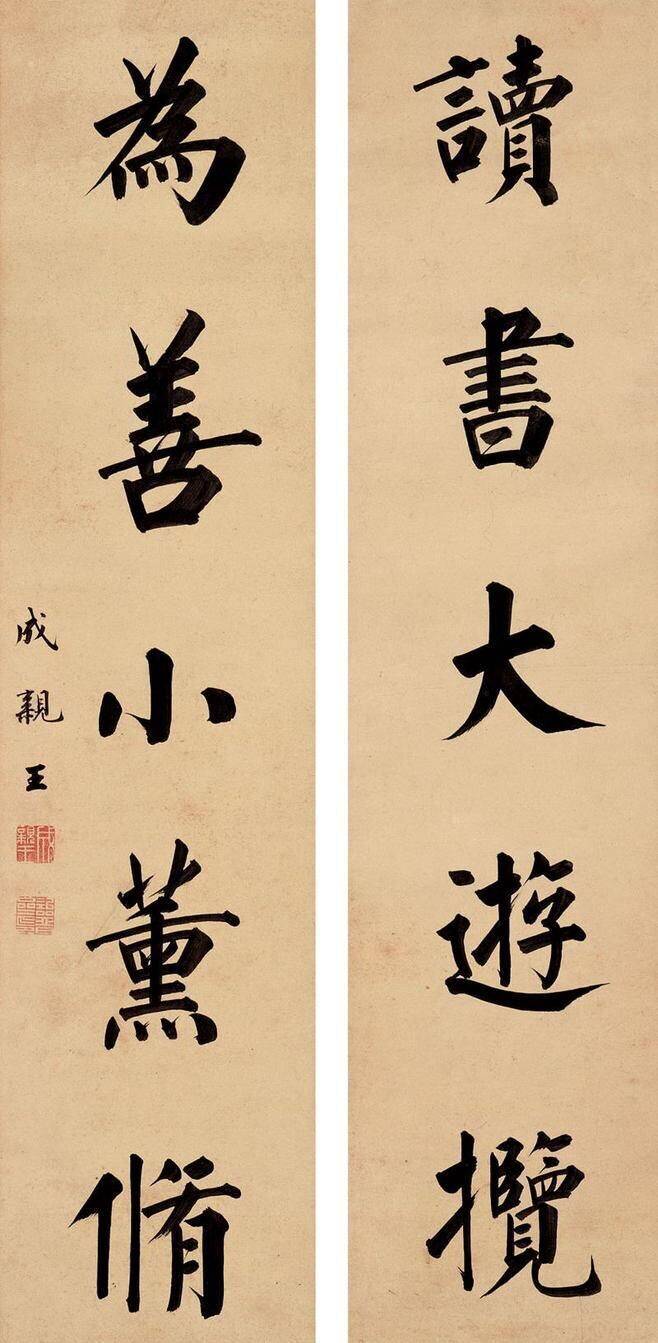 讀書大遊攬
為善小薰脩
成親王